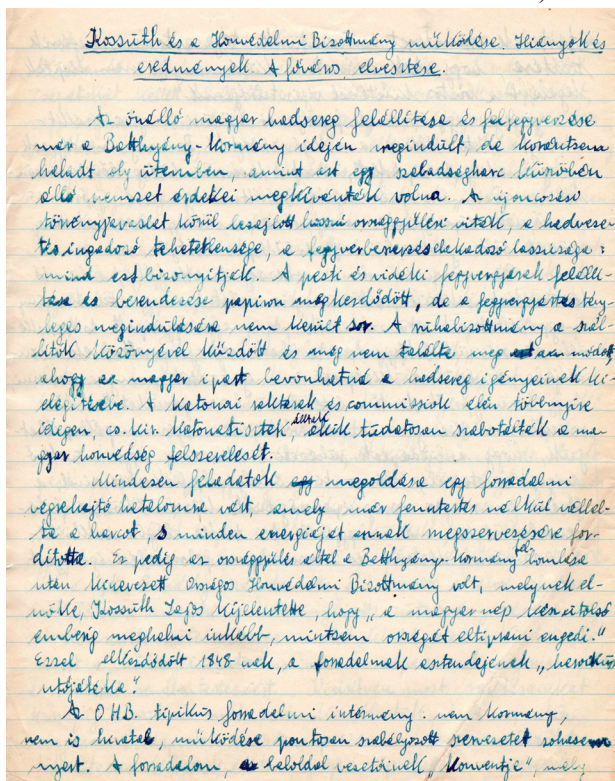 Kossuth és a Honvédelmi Bizottmány működése. Hiányok és
eredmények. A főváros elvesztése.
Az önálló magyar hadsereg felállítása és felfegyverzése
már a Batthyány-kormány idején megindult, de korántsem
haladt oly ütemben, amint azt egy szabadságharc küszöbén
álló nemzet érdekei megkívánták volna. Az újoncozási
törvényjavaslat körül lezajlott hosszú országgyűlési viták, a hadveze-
tés ingadozó tehetetlensége, a fegyverbeszerzés elakadozó lassúsága:
mind ezt bizonyítják. A pesti és vidéki fegyvergyárak felállí-
tása és berendezése papíron megkezdődött, de a fegyvergyártás tény-
leges megindulására nem került sor. A ruhabizottmány a szál-
lítók közönyével küzdött és még nem találta meg azon módot,
ahogy az magyar ipart bevonhatná a hadsereg igényeinek ki-
elégítésébe. A katonai raktárak és commissiok élén többnyire
idegen, cs. kir. katonatisztek álltak, akik tudatosan szabotálták a ma-
gyar honvédség felszerelését.
Mindezen feladatok megoldása egy forradalmi
végrehajtó hatalomra várt, amely már fenntartás nélkül vállal-
ta a harcot, s minden energiáját annak megszervezésére for-
dította. Ez pedig az országgyűlés által a Batthyány-kormány felbomlása
után kinevezett Országos Honvédelmi Bizottmány volt, melynek el-
nöke, Kossuth Lajos kijelentette, hogy „a magyar nép kész utolsó
emberig meghalni inkább, mintsem országát eltiporni engedi."
Ezzel elkezdődött 1848-nak, a forradalmak esztendejének „heroikus
utójátéka".
Az O.H.B. tipikus forradalmi intézmény: nem kormány,
nem is hivatal, működése pontosan szabályozott szervezetet sohasem
nyert. A forradalom, baloldal vezetőinek „konventje", mely